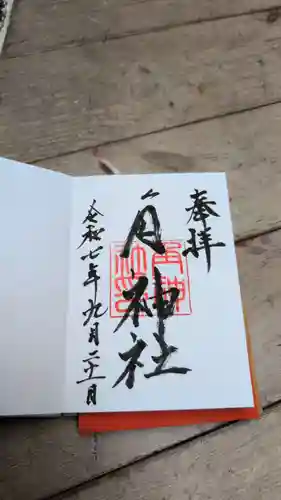 奉拝
角神社
令和七年九月二十一日